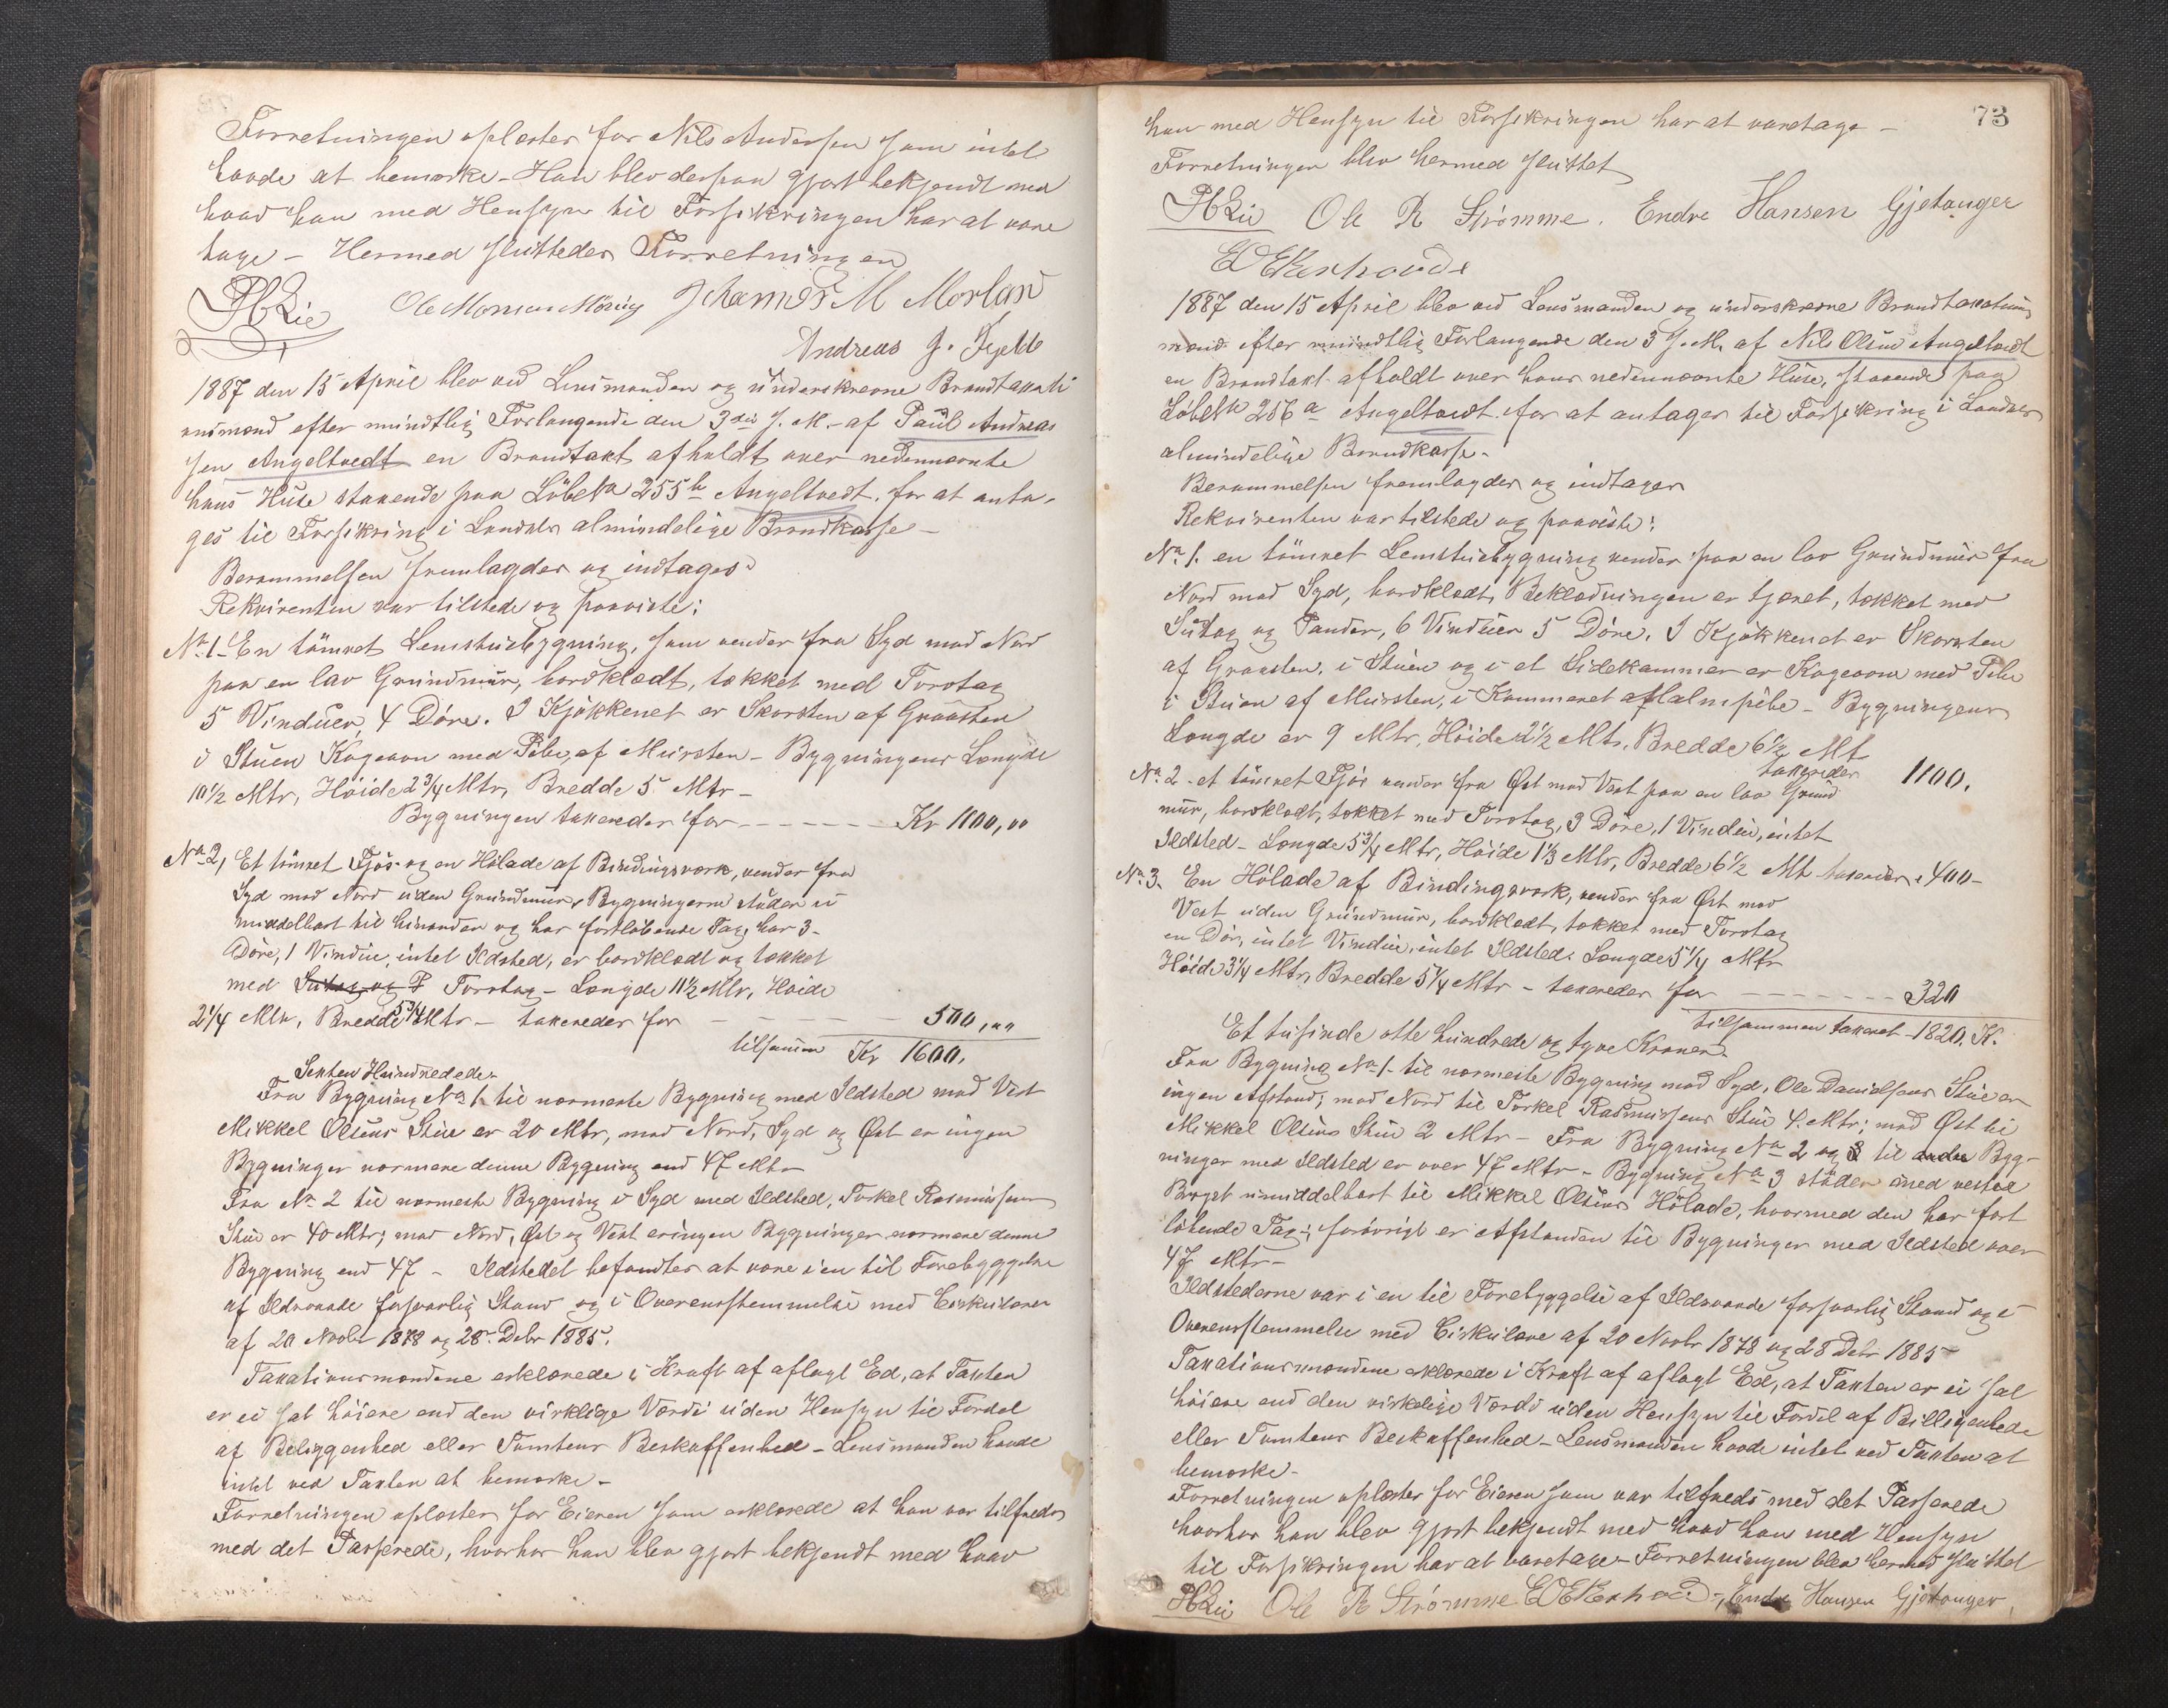 Forretningen oplæstes for Nils Andersen som intet
havde at bemærke - Han blev derpaa gjort bekjendt med
hvad han med Hensyn til Forsikringen har at vare
tage - Hermed sluttedes Forretningen
PbLie Ole Monsen Johannes M Morland
Andreas J. Fjeld
1887 den 15 April blev ved Lensmanden og underskrevne Brandtaxati
onsmænd efter mundtlig Forlangende den 3die d. M. af Paul Andreas
sen Angeltvedt en Brandtaxt afholdt over nedennævnte
hans Huse staaende paa Løbe№ 255b Angeltvedt for at anta-
ges til Forsikring i Landets almindelige Brandkasse -
Berammelsen fremlagdes og indtages
Rekvirenten var tilstede og paaviste:
№ 1 En tømret Lemstuebygning, som vender fra Syd mod Nord
paa en lav Grundmur, bordklædt, tækket med Torvtag
5 Vinduer, 4 Døre. I Kjøkkenet er Skorsten af Graasten
i Stuen Kogeovn med Pibe, af Mursten - Bygningens Længde
10½ Mtr, Høide 2¾ Mtr, Bredde 5 Mtr -
Bygningen taxeredes for - - - - - - Kr 1100,00
№ 2, Et tømret Fjøs og en Hølade af Bindingsværk, vender fra
Syd mod Nord uden Grundmur, Bygningerne støder u
middelbart til hinanden og har fortløbende Tag, har 3-
Døre, 1 Vindue, intet Ildsted, er bordklædt og tækket
med Sutag og P Torvtag - Længde 11½ Mtr, Høide
2¼ Mtr, Bredde 5¾ Mtr - taxeredes for - - - - - 500,00
tilsammen Kr 1600.
Sexten Hundrede.
Fra Bygning № 1 til nærmeste Bygning med Ildsted mod Vest
Mikkel Olsens Stue er 20 Mtr, mod Nord, Syd og Øst er ingen
Bygninger nærmere denne Bygning end 47 Mtr
Fra № 2 til nærmeste Bygning i Syd med Ildsted, Torkel Rasmussens
Stue er 40 Mtr; mod Nord, Øst og Vest er ingen Bygninger nærmere denne
Bygning end 47 - Ildstedet befandtes at være i en til Forebyggelse
af Ildsvaade forsvarlig Stand og i Overensstemmelse med Cirkulærer
af 20 Novbr 1878 og 28 Debr 1885.
Taxationsmændene erklærede i Kraft af aflagt Ed, at Taxten
er ei sat høiere end den virkelige Værdi uden Hensyn til Fordel
af Beliggenhed eller Tomtens Beskaffenhed - Lensmanden havde
intet ved Taxten at bemærke -
Forretningen oplæstes for Eieren som erklærede at han var tilfreds
med det Passerede, hvorhos han blev gjort bekjendt med hvad
73
han med Hensyn til Forsikringen har at varetage -
Forretningen blev hermed sluttet
PbLie Ole R Strømme. Endre Hansen Gjetanger
EOEkerhovde
1887 den 15 April blev ved Lensmanden og underskrevne Brandtaxations
mænd efter mundtlig Forlangende den 3 d. M. af Nils Olsen Angeltvedt
en Brandtaxt afholdt over hans nedennævnte Huse, staaende paa
Løbe№ 256a Angeltvedt for at antages til Forsikring i Landets
almindelige Brandkasse -
Berammelsen fremlagdes og indtages
Rekvirenten var tilstede og paaviste:
№ 1. en tømret Lemstuebygning vender paa en lav Grundmur fra
Nord mod Syd, bordklædt, Beklædningen er tjæret, tækket med
Sutag og Pander, 6 Vinduer 5 Døre. I Kjøkkenet er Skorsten
af Graasten, i Stuen og i et Sidekammer er Kogeovn med Pibe
i Stuen af Mursten, i Kammeret af Halmpibe - Bygningens
Længde er 9 Mtr, Høide 2½ Mtr, Bredde 6½ Mt
taxeredes 1100.
№ 2 - et tømret Fjøs vender fra Øst mod Vest paa en lav Grund
mur, bordklædt, tækket med Torvtag, 3 Døre, 1 Vindue, intet
Ildsted - Længde 5¾ Mtr, Høide 1⅓ Mtr, Bredde 6½ Mt taxeredes 400-
№ 3. En Hølade af Bindingsværk, vender fra Øst mod
Vest uden Grundmur, bordklædt, tækket med Torvtag
en Dør, intet Vindue, intet Ildsted. Længde 5¼ Mtr
Høide 3¼ Mtr, Bredde 5¼ Mtr - taxeredes for - - - - - - - 320
tilsammen taxeret 1820. Kr.
Et tusinde otte hundrede og tyve Kroner.
Fra Bygning № 1 til nærmeste Bygning mod Syd, Ole Danielsens Stue er
ingen Afstand; mod Nord til Torkel Rasmussens Stue 4 Mtr; mod Øst til
Mikkel Olsens Stue 2 Mtr - Fra Bygning № 2 og 3 til andre Byg-
ninger med Ildsted er over 47 Mtr - Bygning № 3 støder med vestre
umiddelbart til Mikkel Olsens Hølade, hvormed den har fort
løbende Tag; forøvrigt er Afstanden til Bygninger med Ildsted over
47 Mtr -
Ildstederne var i en til Forebyggelse af Ildsvaade forsvarlig Stand og i
Overensstemmelse med Cirkulære af 20 Novbr 1878 og 28 Debr 1885
Taxationsmændene erklærede i Kraft af aflagt Ed, at Taxten er ei sat
høiere end den virkelige Værdi uden Hensyn til Fordel af Beliggenhed
eller Tomtens Beskaffenhed - Lensmanden havde intet ved Taxten at
bemærke -
Forretningen oplæstes for Eieren som var tilfreds med det Passerede
hvorhos han blev gjort bekjendt med hvad han med Hensyn
til Forsikringen har at varetage - Forretningen blev hermed sluttet
PbLie Ole R Strømme EOEkerhovde, Endre Hansen Gjetanger,